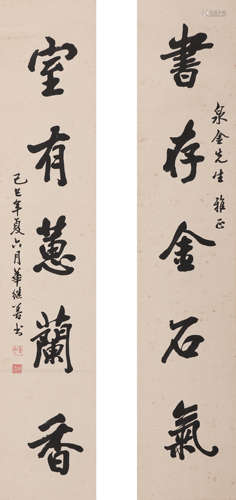 書存金石氣
泉金先生雅正
室有蕙蘭香
己巳年夏六月華繼善書